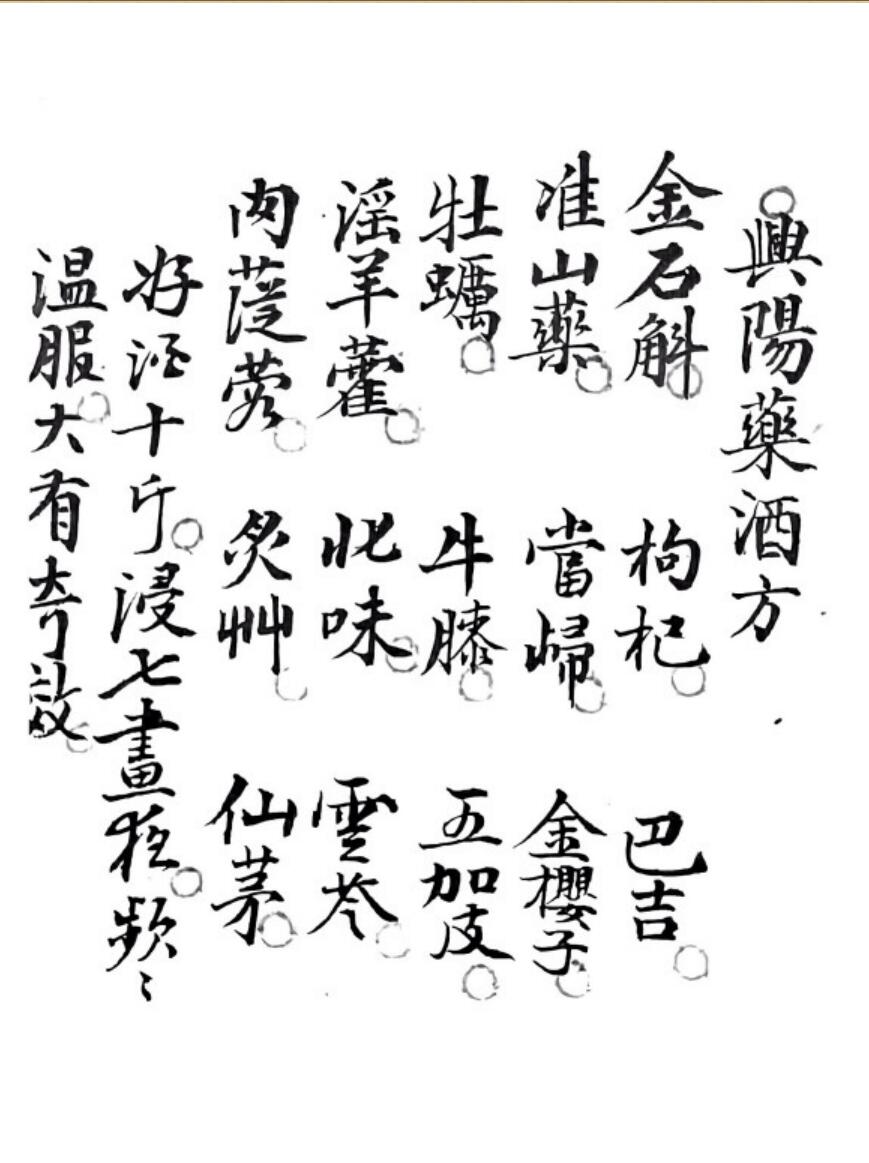 興陽藥酒方
金石斛 枸杞 巴吉
准山藥 當歸 金櫻子
牡蠣 牛膝 五加皮
淫羊藿 北味 雲苓
肉蓯蓉 炙艸 仙茅
好酒十斤浸七晝夜頻〻
温服大有奇效